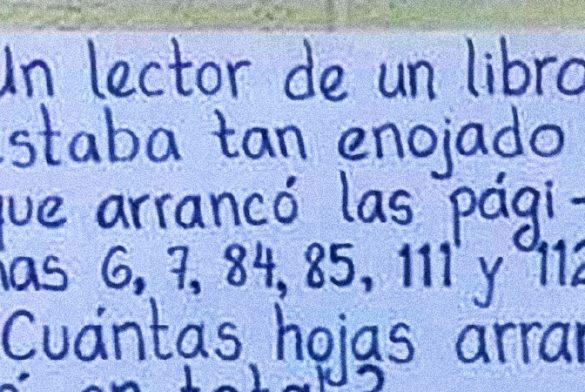 Un lector de un libro
staba tan enojado
que arrancó las pági-
nas 6, 7, 84, 85, 111 y 112
Cuántas hojas arran
ó en total?